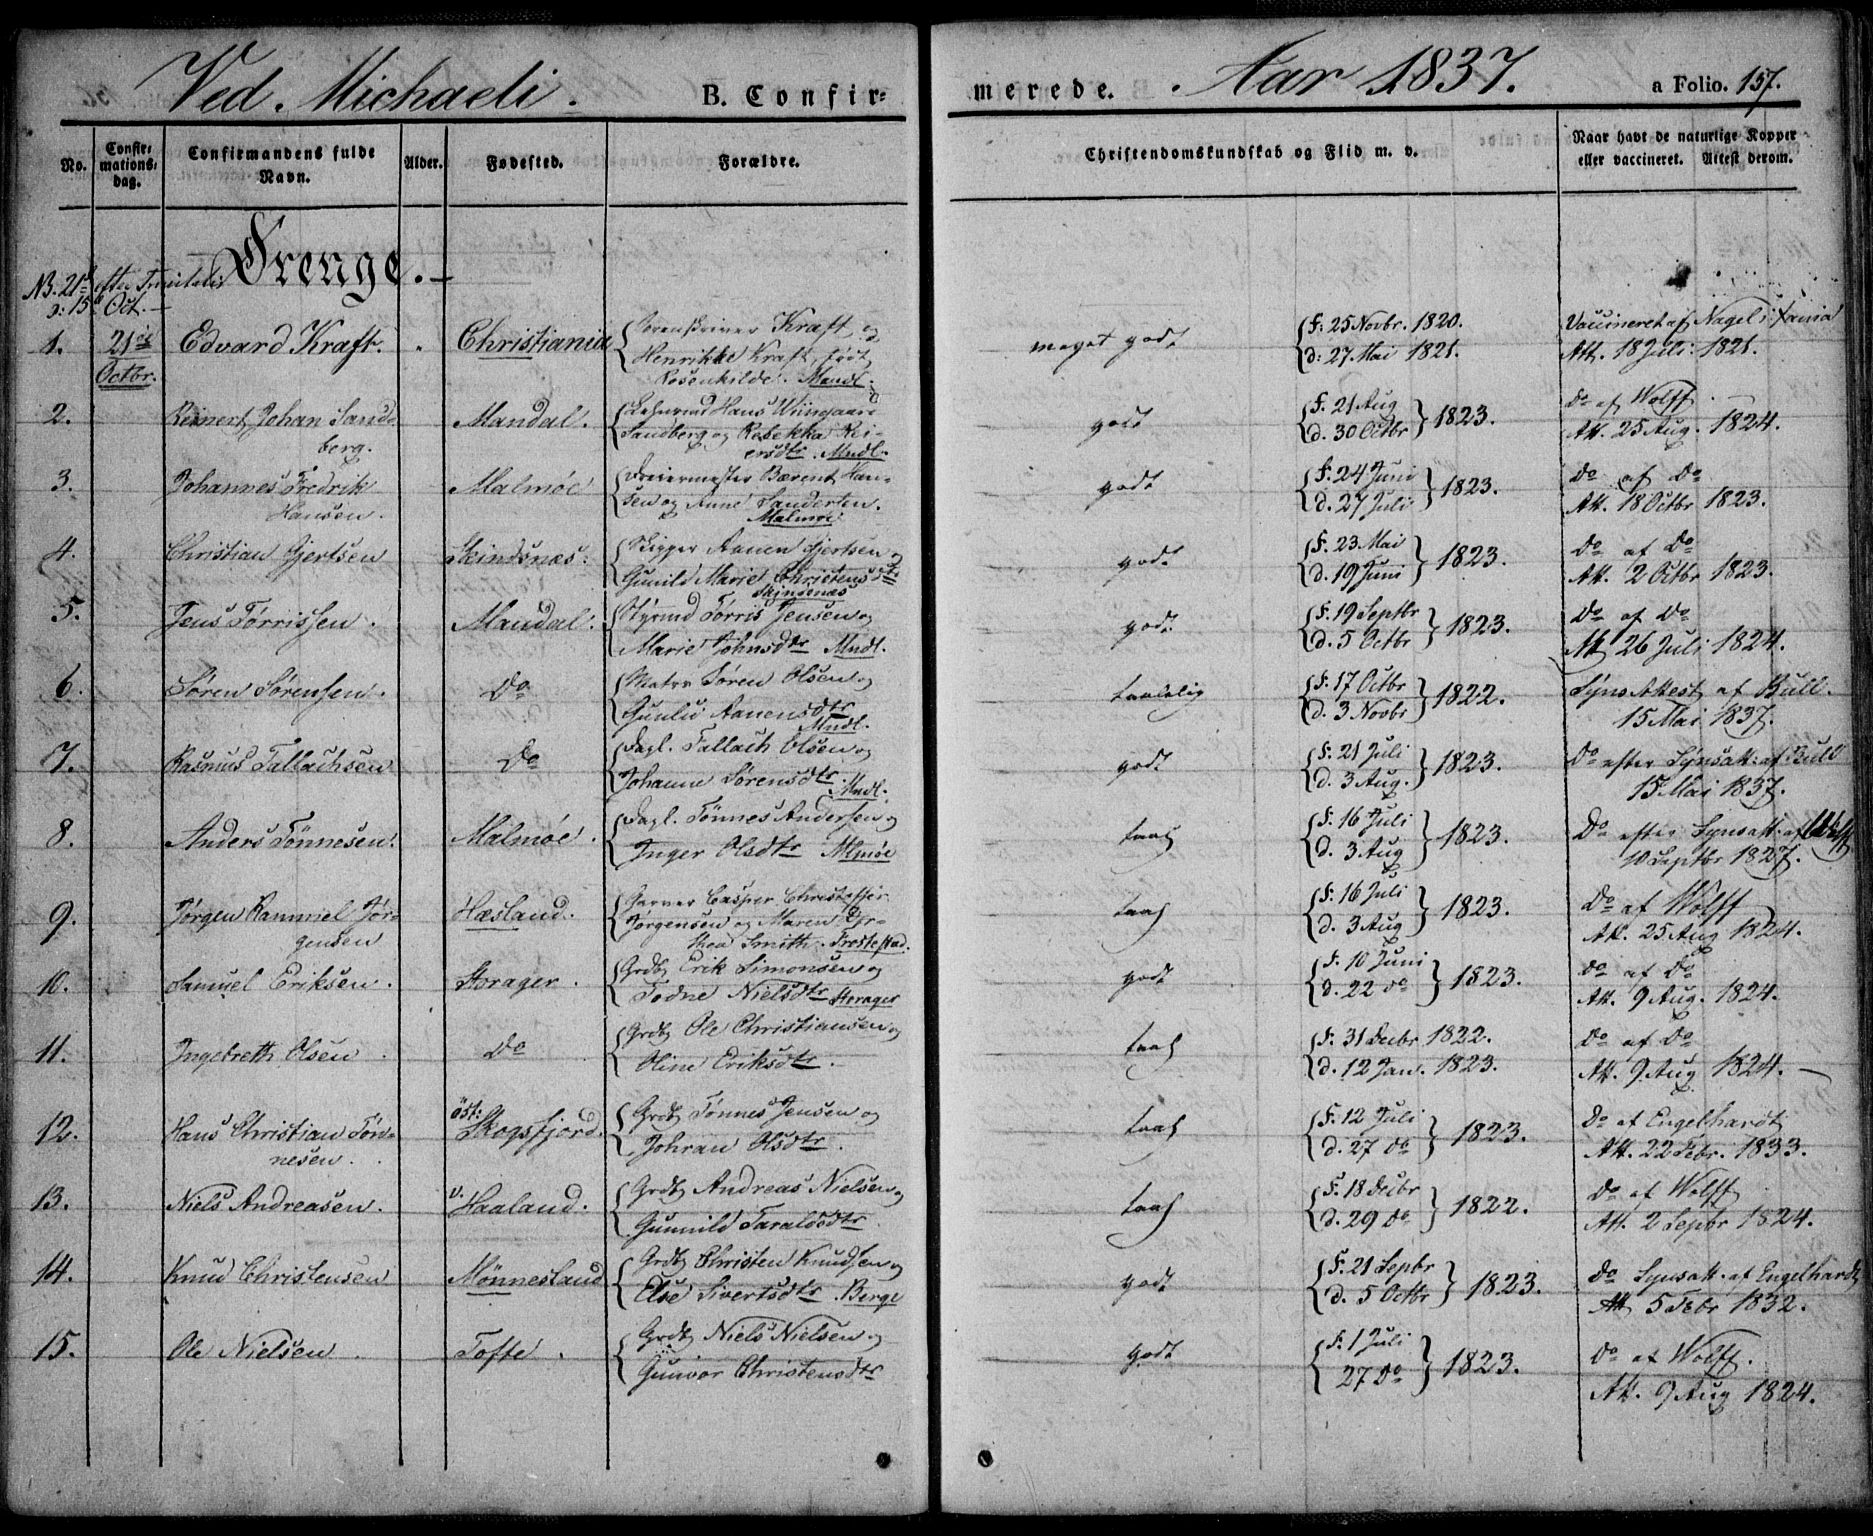 Ved Michaeli. B. Confir=
merede. Aar 1837. a Folio. 157.
No. Confir= mations= dag. Confirmandens fulde Navn. Alder. Fødested. Forældre.
Christendomskundskab og Flid m. v. Naar havt de naturlige Kopper eller vaccineret. Attest derom.
Drenge.
NB. 21de efter Trinitatis
ɔ: 15 Oct.
1. 21de Octbr. Edvard Kraft. Christiania Sorenskriver Kraft og
Henrikke Kraft, født
Rosenkilde. Mandl.
meget godt F: 25 Novbr. 1820.
d: 27 Mai 1821.
Vaccineret af Nagel i Xania
Att. 18 Juli 1821.
2. Reinert Johan Sand=
berg. Mandal. Hans Wiingaard
Sandberg og Rebekka Rei-
ersdtr. Mndl.
godt F. 21 Aug
d. 30 Octbr 1823.
Do af Wolff.
Att. 25 Aug. 1824.
3. Johannes Fredrik
Hansen. Malmöe Dreiermester Bærent Han-
sen og Anne Sandersen.
Malmöe
godt F. 24 Juni
d. 27 Juli 1823.
Do af Do
Att. 18 Octbr 1823.
4. Christian Gjertsen Skindsnæs. Skipper Aanen Gjertsen og
Gunild Marie Christensdtr
Skinsenæs
godt F. 23 Mai
d. 19 Juni 1823.
Do af Do
Att. 2 Octbr 1823.
5. Jens Tørrissen. Mandal. Styrmd Tørris Jensen og
Marie Johnsdtr Mndl.
godt F. 19 Septbr
d. 5 Octbr 1823.
Do af Do
Att 26 Juli 1824.
6. Søren Sørensen. Do Matr Søren Olsen og
Gunild Aanensdtr
Mndl.
taalelig F. 17 Octbr
d. 3 Novbr 1822.
Syns Attest af Bull.
15 Mai 1837.
7. Rasmus Tallachsen Do Dagl. Tallach Olsen og
Johanne Sørensdtr. Mndl.
godt F. 21 Juli
d. 3 Aug. 1823.
Do efter Synsatt: af Bull
15 Mai 1837.
8. Anders Tønnesen. Malmöe. Dagl. Tønnes Andersen og
Inger Olsdtr Mlmöe
taal F. 16 Juli
d. 3 Aug 1823.
Do efter Synsatt. af Wolff
10 Septbr 1827.
9. Jørgen Jør-
gensen Hæsland. Garver Casper Christoffer
Jørgensen og Maren Dor-
thea Smith. Frøstestad.
taal F. 16 Juli
d. 3 Aug 1823.
Do af Wolff
Att. 25 Aug 1824.
10. Samuel Eriksen. Storager. Grdb Erik Simonsen og
Todne Nielsdtr Storager
godt F. 10 Juni
d. 22 do 1823.
do af do
Att. 9 Aug. 1824.
11. Ingebreth Olsen Do Grdb Ole Christiansen og
Oline Eriksdtr.
taal F. 31 Decbr 1822.
d. 12 Jan. 1823.
do af do
Att. 9 Aug 1824.
12. Hans Christian Tøn-
nesen. öst: Skogsfjord. Grdb Tønnes Jensen og
Johran Olsdtr.
taal F. 12 Juli
d. 27 do 1823.
Do af Engelhardt
Att. 22 Febr. 1833.
13. Niels Andreasen. v. Haaland. Grdb Andreas Nielsen og
Gunnild Taraldsdtr
taal F. 18 Decbr
d. 29 do 1822.
do af Wolff
Att. 2 Sepbr 1824.
14. Knud Christensen Mønnesland Grdb Christen Knudsen og
Else Sivertsdtr. Berge
godt F. 21 Sepbr
d. 5 Octbr 1823.
do Synsatt. af Engelhardt
Att 5 Febr 1832.
15. Ole Nielsen Tofte. Grdb Niels Nielsen og
Gunvor Christensdtr
godt F. 1 Juli
27 do 1823.
do af Wolff.
Att. 9 Aug 1824.